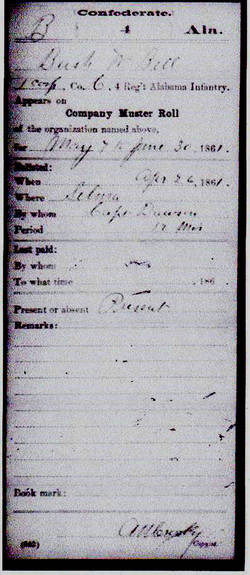 Confederate.
B 4 Ala.
Bush W. Bell
1 Corp, Co. C, 4 Reg't Alabama Infantry.
Appears on
Company Muster Roll
of the organization named above,
for May 7 to June 30, 1861.
Enlisted:
When Apr 26, 1861.
Where Selma
By whom Capt Dawson
Period 12 Mos
Last paid:
By whom
To what time , 186 .
Present or absent Present
Remarks:
Book mark:
Copyist.